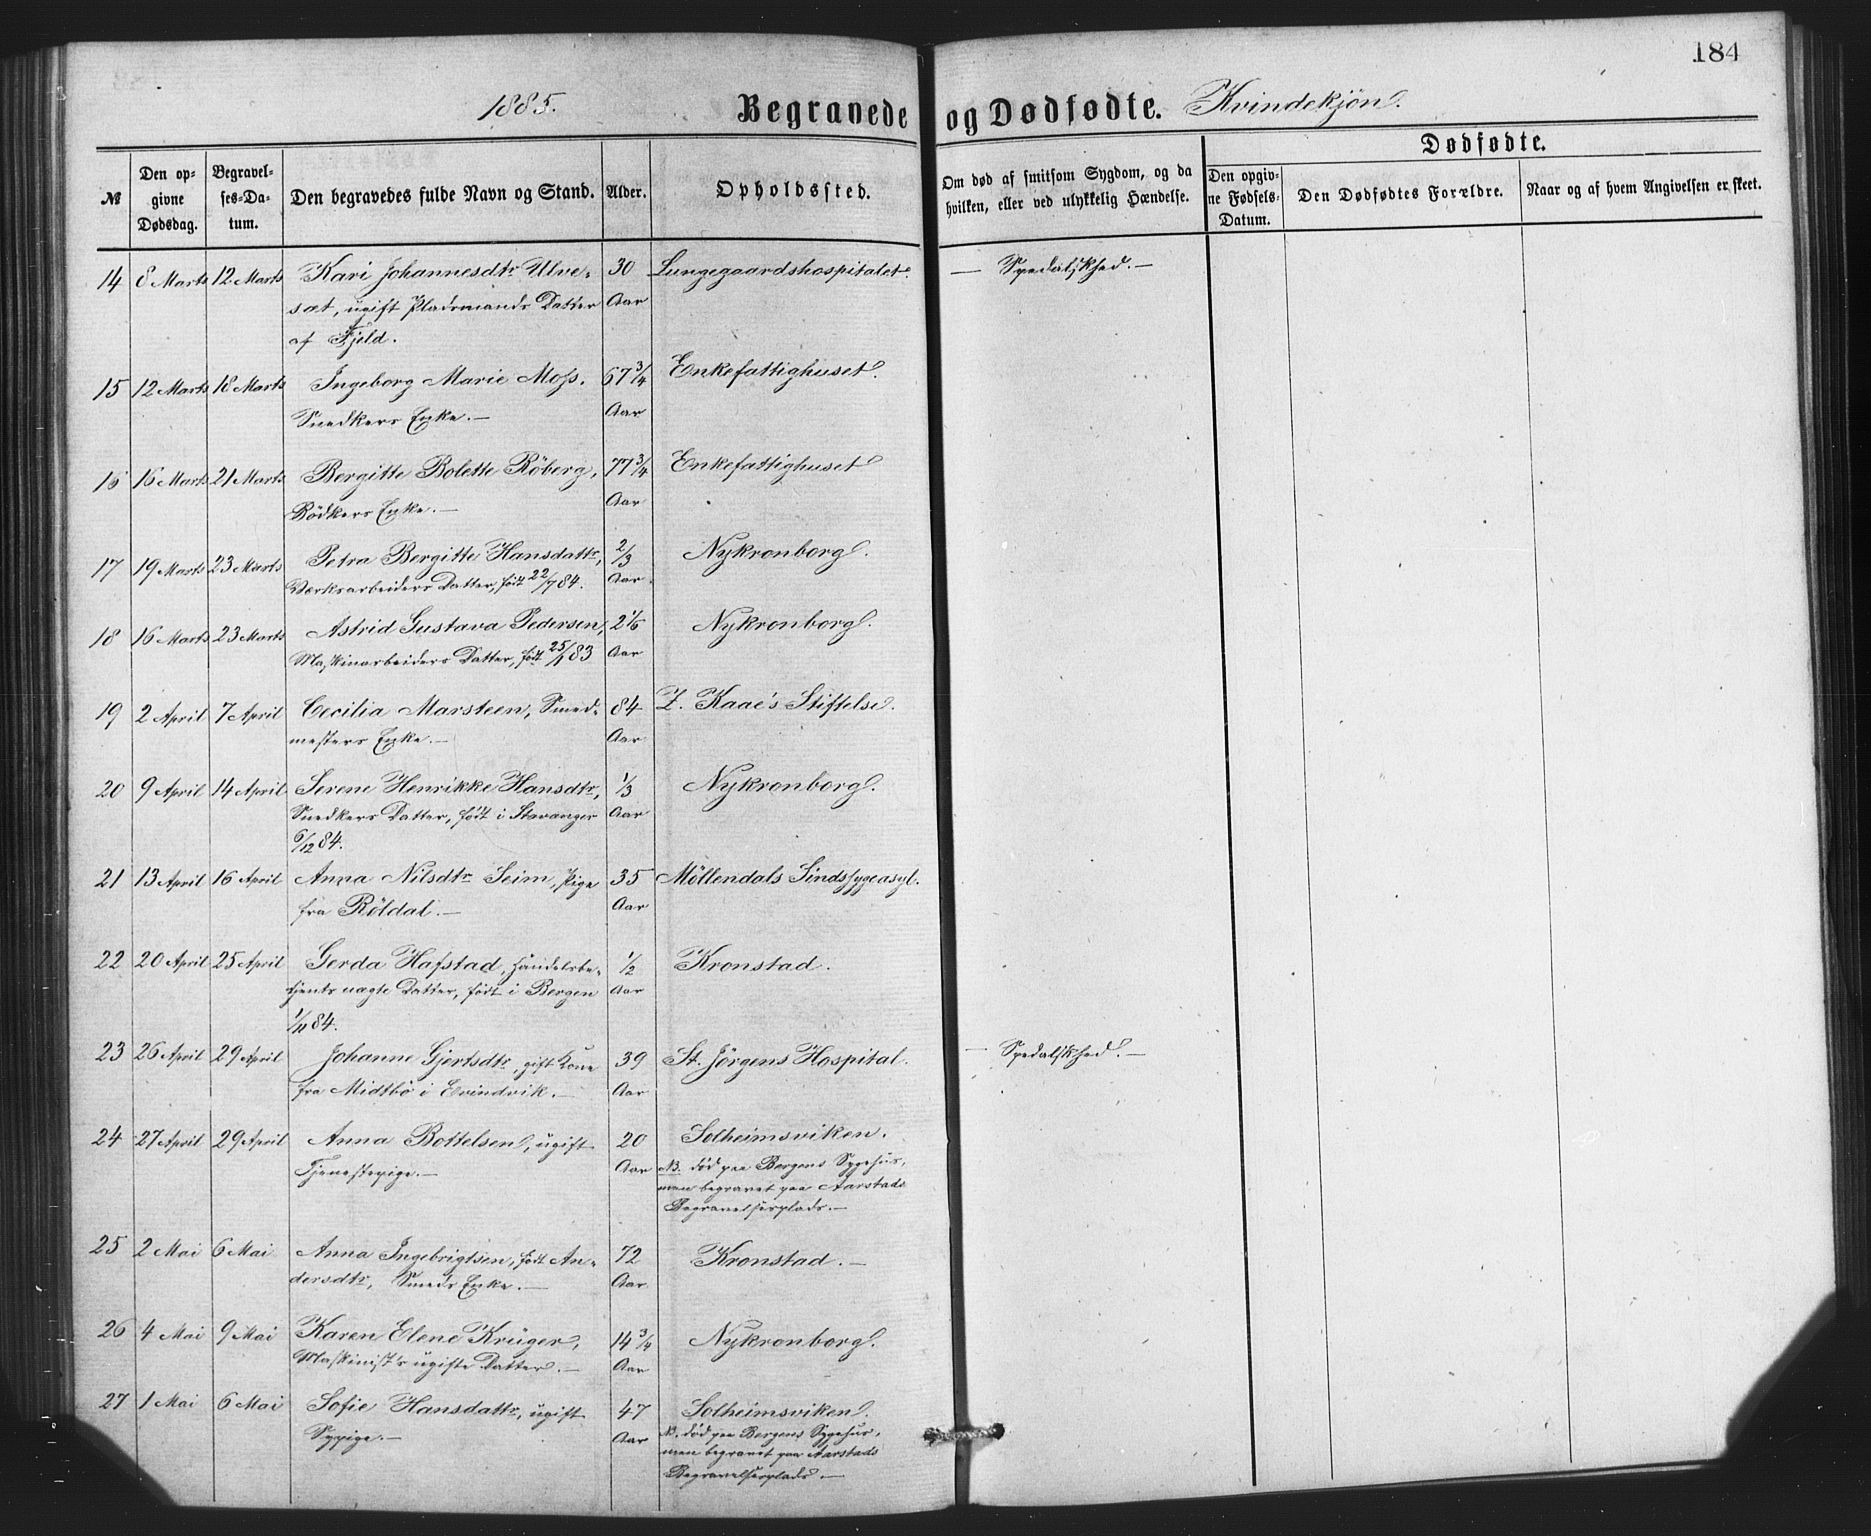 184
1885. Begravede og Dødfødte. Kvindekjøn.
№
Den opgivne Dødsdag.
Begravelses-Datum.
Den begravedes fulde Navn og Stand.
Alder.
Opholdssted.
Om død af smitsom Sygdom, og da hvilken, eller ved ulykkelig Hændelse.
Dødfødte.
Den opgivne Fødsels-Datum.
Den Dødfødtes Forældre.
Naar og af hvem Angivelsen er skeet.
14 8 Marts 12 Marts Kari Johannesdtr Ulve- 30 Lungegaardshospitalet. — Spedalskhed. —
sæt, ugift Pladsmands Datter Aar
af Fjeld.
15 12 Marts 18 Marts Ingeborg Marie Moss. 67 3/4 Enkefattighuset.
Snedkers Enke. — Aar
16 16 Marts 21 Marts Bergitte Bolette Röberg, 77 3/4 Enkefattighuset
Bödkers Enke. — Aar
17 19 Marts 23 Marts Petra Bergitte Hansdattr, 2/3 Nykronborg.
Værksarbeiders Datter, født 22/7 84. Aar.
18 16 Marts 23 Marts Astrid Gustava Pedersen, 2 1/6 Nykronborg.
Maskinarbeiders Datter, født 25/1 83 Aar
19 2 April 7 April Cecilia Marsteen, Smed- 84 Z. Kaae's Stiftelse.
mesters Enke. — Aar
20 9 April 14 April Serene Henrikke Hansdtr, 1/3 Nykronborg.
Snedkers Datter, født i Stavanger Aar
6/12 84.
21 13 April 16 April Anna Nilsdtr Seim, Pige 35 Möllendals Sindssygeasyl.
fra Röldal. — Aar
22 20 April 25 April Gerda Hafstad, Handelsbe- 1/2 Kronstad.
tjents ægte Datter, født i Bergen Aar
1/11 84.
23 26 April 29 April Johanne Gjertsdtr, gift Kone 39 St. Jörgens Hospital. — Spedalskhed. —
fra Midtbö i Evindvik. — Aar
24 27 April 29 April Anna Bottelsen, ugift 20 Solheimsviken.
Tjenestepige. — Aar NB. død paa Bergens Sygehus,
men begravet paa Aarstads
Begravelsesplads. —
25 2 Mai 6 Mai Anna Ingebrigtsen, født An- 72 Kronstad. —
dersdtr, Smeds Enke. — Aar
26 4 Mai 9 Mai Karen Elene Krüger, 14 3/4 Nykronborg.
Maskinist's ugifte Datter. — Aar
27 1 Mai 6 Mai Sofie Hansdattr, ugift 47 Solheimsviken.
Sypige. — Aar N. død paa Bergens Sygehus,
men begravet paa Aarstads
Begravelsesplads. —